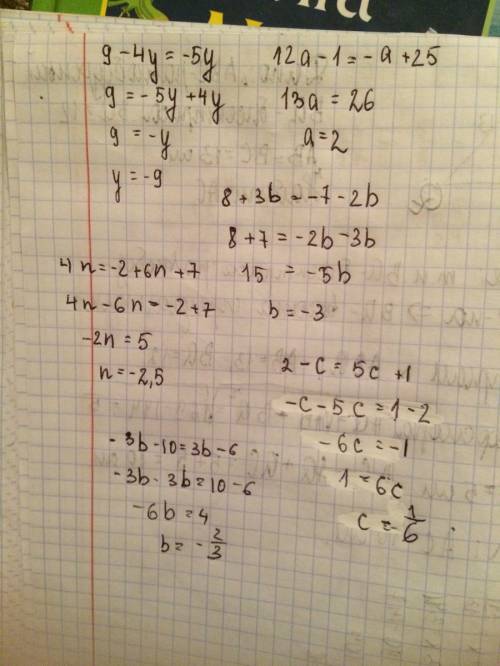 9 - 4y = -5y
9 = -5y + 4y
9 = -y
y = -9
12a - 1 = -a + 25
13a = 26
a = 2
8 + 3b = -7 - 2b
8 + 7 = -2b - 3b
15 = -5b
b = -3
4n = -2 + 6n + 7
4n - 6n = -2 + 7
-2n = 5
n = -2,5
2 - c = 5c + 1
-c - 5c = 1 - 2
-6c = -1
1 = 6c
c = 1/6
-3b - 10 = 3b - 6
-3b - 3b = 10 - 6
-6b = 4
b = -2/3